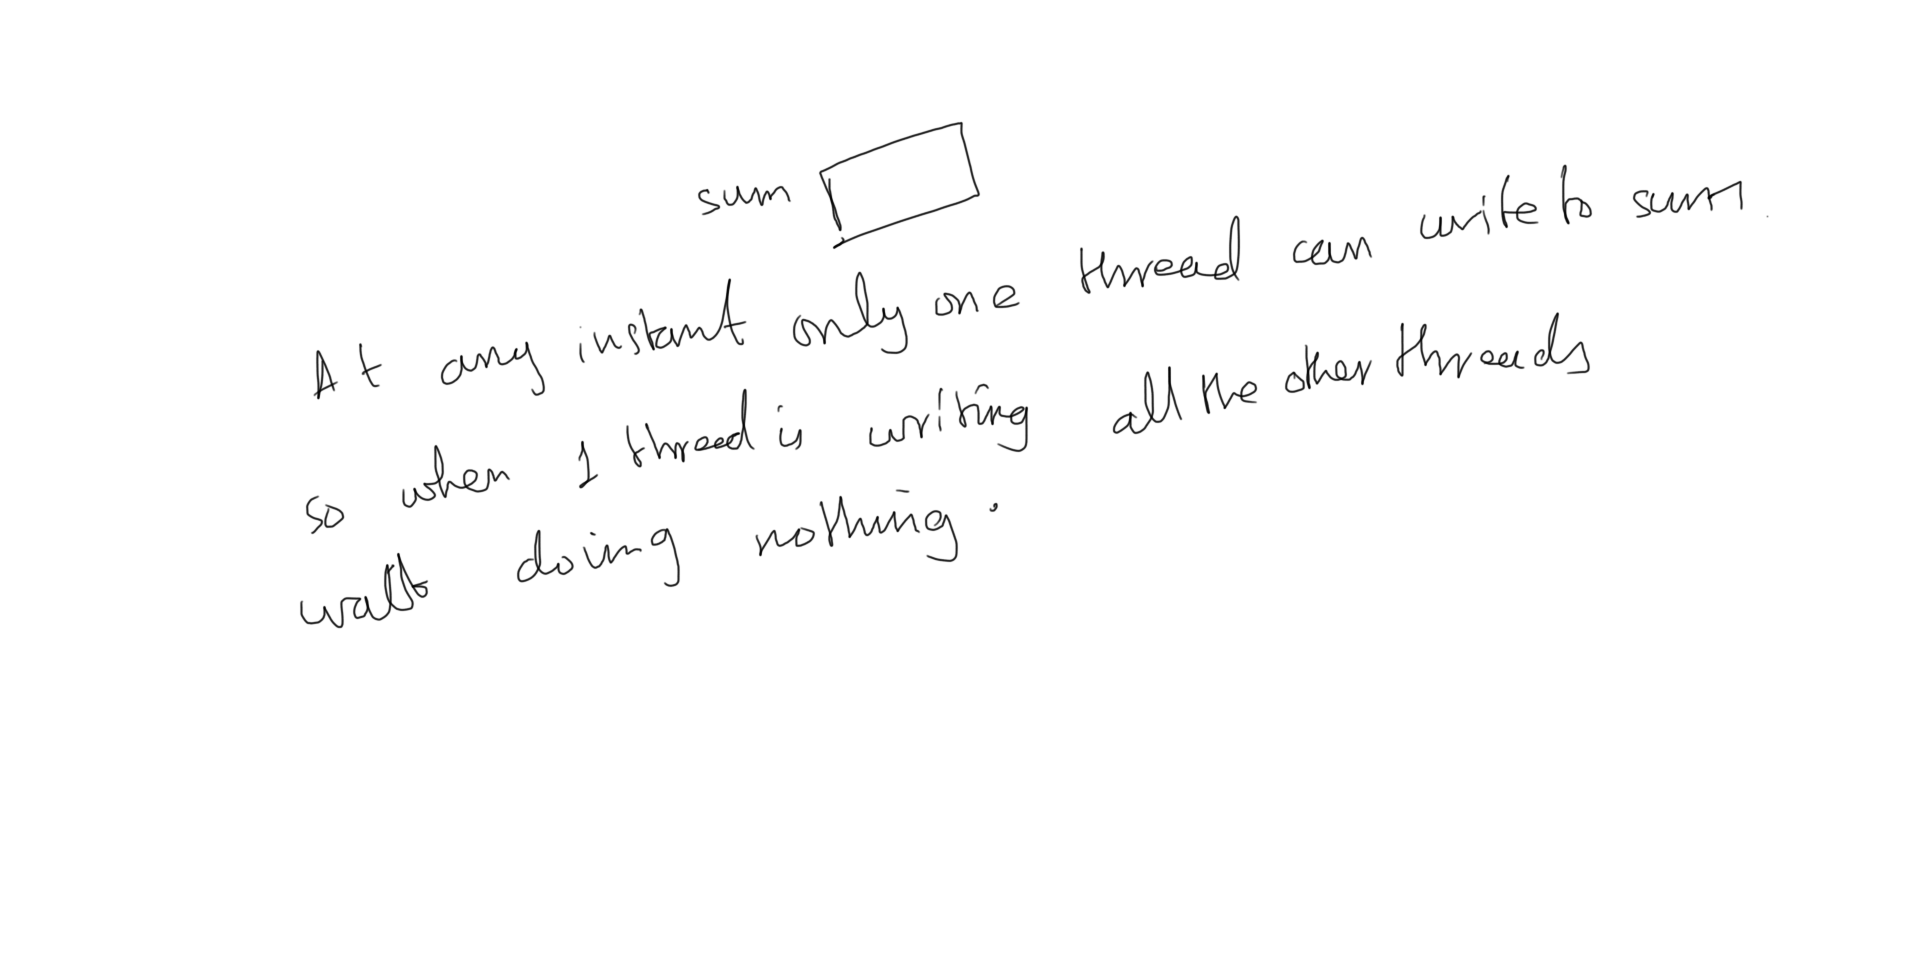 sum
At any instant only one thread can write to sum.
so when 1 thread is writing all the other threads
wait doing nothing.